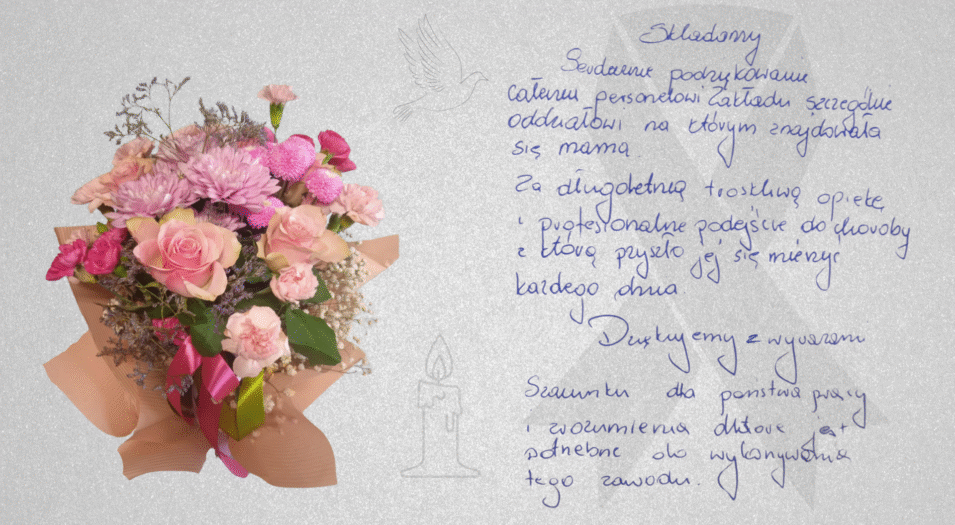 Składamy
Serdeczne podziękowanie
całemu personelowi Zakładu szczególnie
oddziałowi na którym znajdowała
się mama.
Za długoletnią troskliwą opiekę
i profesjonalne podejście do choroby
z którą przyszło jej się mierzyć
każdego dnia
Dziękujemy z wyrazami
Szacunku dla państwa pracy
i zrozumienia które jest
potrzebne do wykonywania
tego zawodu.